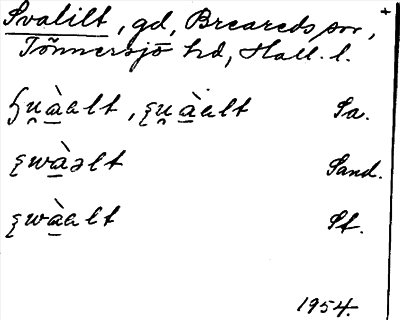 Svalilt, gd, Breareds sn, +
Tönnersjö hd, Hall. l.
ʂu̯àalt, ʂu̯àalt Sa.
ʂwàəlt Sand.
ʂwàalt St.
1954.